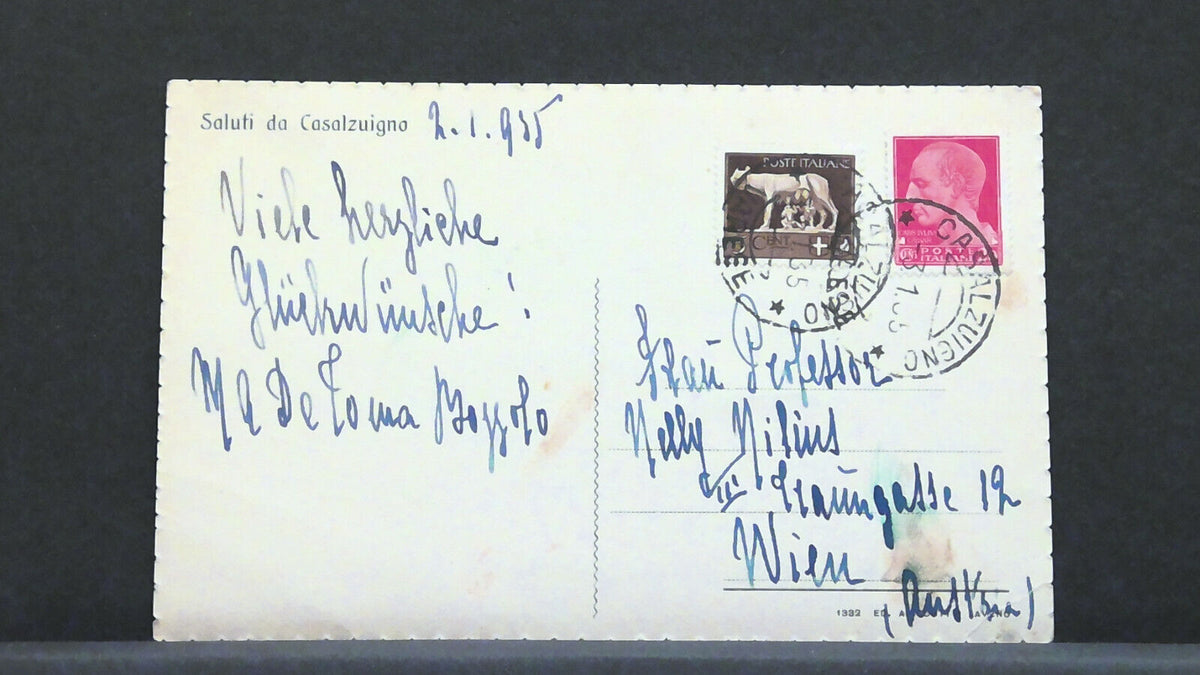 Saluti da Casalzuigno 2.1.935
Viele herzliche
Glückwünsche!
M A De Toma Bozzolo
POSTE ITALIANE
CENT
POSTE
ITALIANE
CASALZUIGNO
3.1.35
CASALZUIGNO
Frau Professor
Nelly Nilius
III Traungasse 12
Wien
(Austria)
1332 ED.